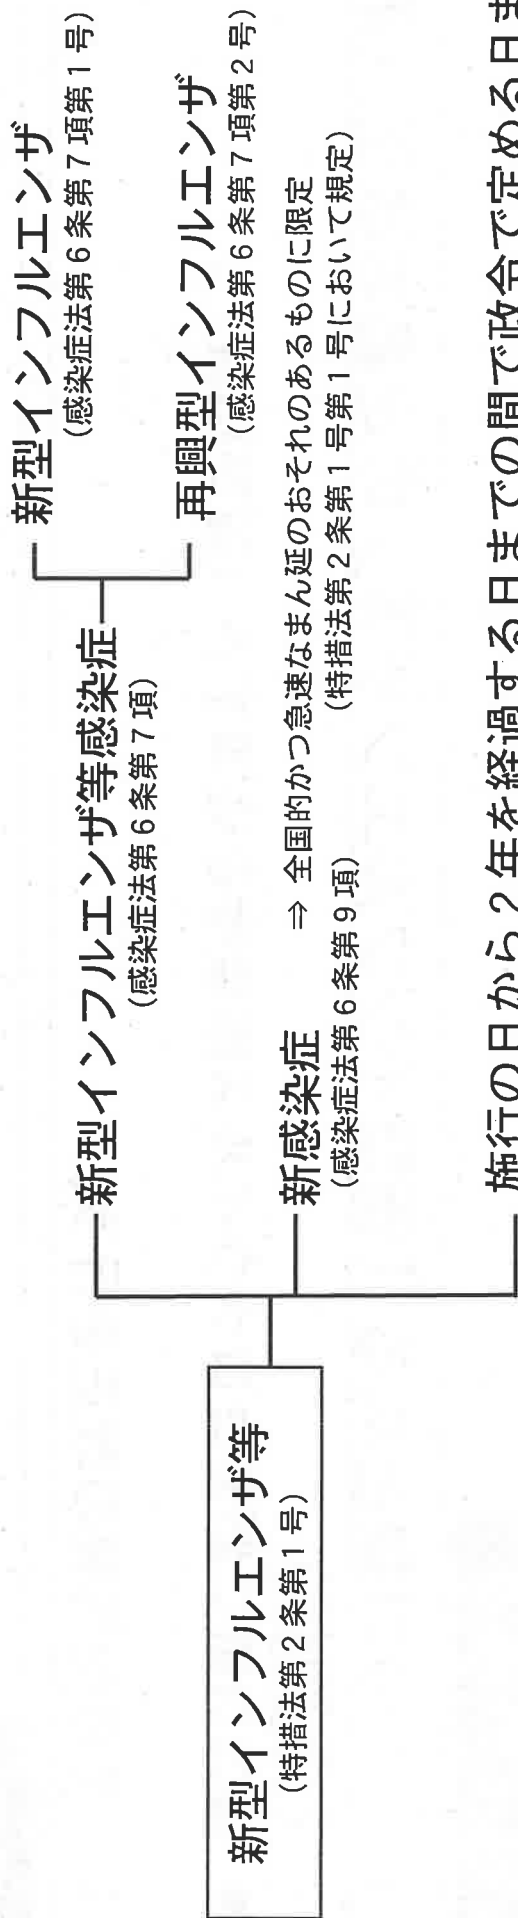 新型インフルエンザ等
(特措法第2条第1号)
新型インフルエンザ等感染症
(感染症法第6条第7項)
新型インフルエンザ
(感染症法第6条第7項第1号)
再興型インフルエンザ
(感染症法第6条第7項第2号)
新感染症
(感染症法第6条第9項)
⇒ 全国的かつ急速なまん延のおそれのあるものに限定
(特措法第2条第1号第1号において規定)
施行の日から2年を経過する日までの間で政令で定める日ま